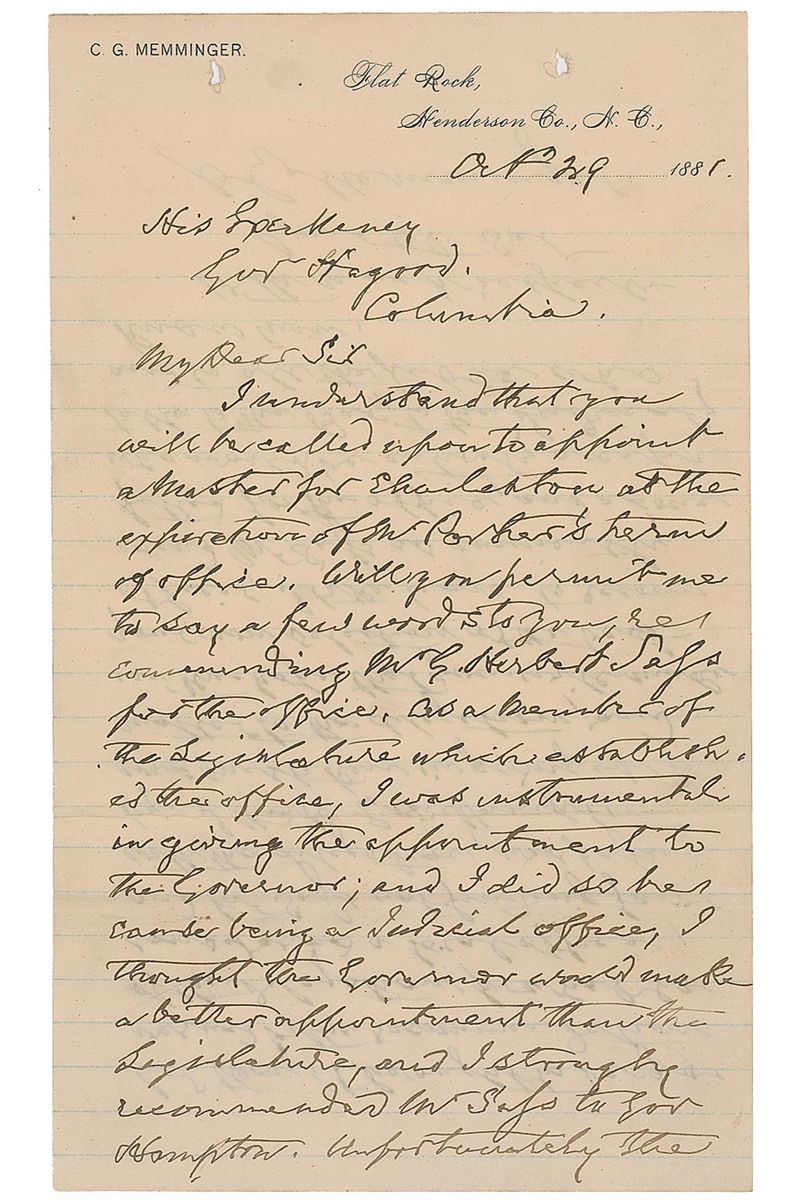 C. G. MEMMINGER.
Flat Rock,
Henderson Co., N. C.,
Octr 29 1881.
His Excellency
Gov Hagood.
Columbia.
My Dear Sir
I understand that you
will be called upon to appoint
a Master for Charleston at the
expiration of Mr Porter's term
of office. Will you permit me
to say a few words to you, rec
commending Mr G. Herbert Sass
for the office. As a Member of
the Legislature which establish-
ed the office, I was instrumental
in giving the appointment to
the Governor; and I did so be
cause being a Judicial office, I
thought the Governor would make
a better appointment than the
Legislature, and I strongly
recommended Mr Sass to Gov
Hampton. Unfortunately the